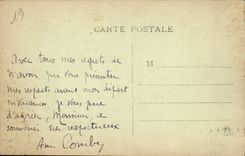 19
CARTE POSTALE
Avec tous mes regrets de
n'avoir pu vous présenter
mes respects avant mon départ
en vacances, je vous prie
d'agréer, Monsieur, ce
souvenir très respectueux
M